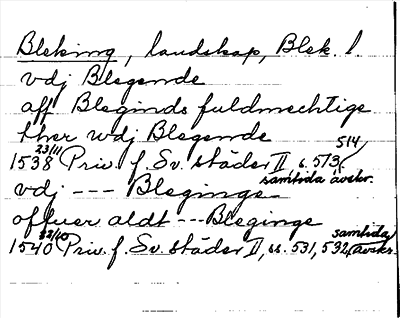 Bleking, landskap, Blek. l.
vdj Blegende
aff Bleginds fuldmechtige
ther wdj Blegende
1538 23/11 Priv. f. Sv. städer II s. 513, 514
samtida avskr.
vdj --- Bleginge
offuer aldt --- Bleginge
1540 22/10 Priv. f. Sv. städer II, ss. 531, 532, samtida avskr.